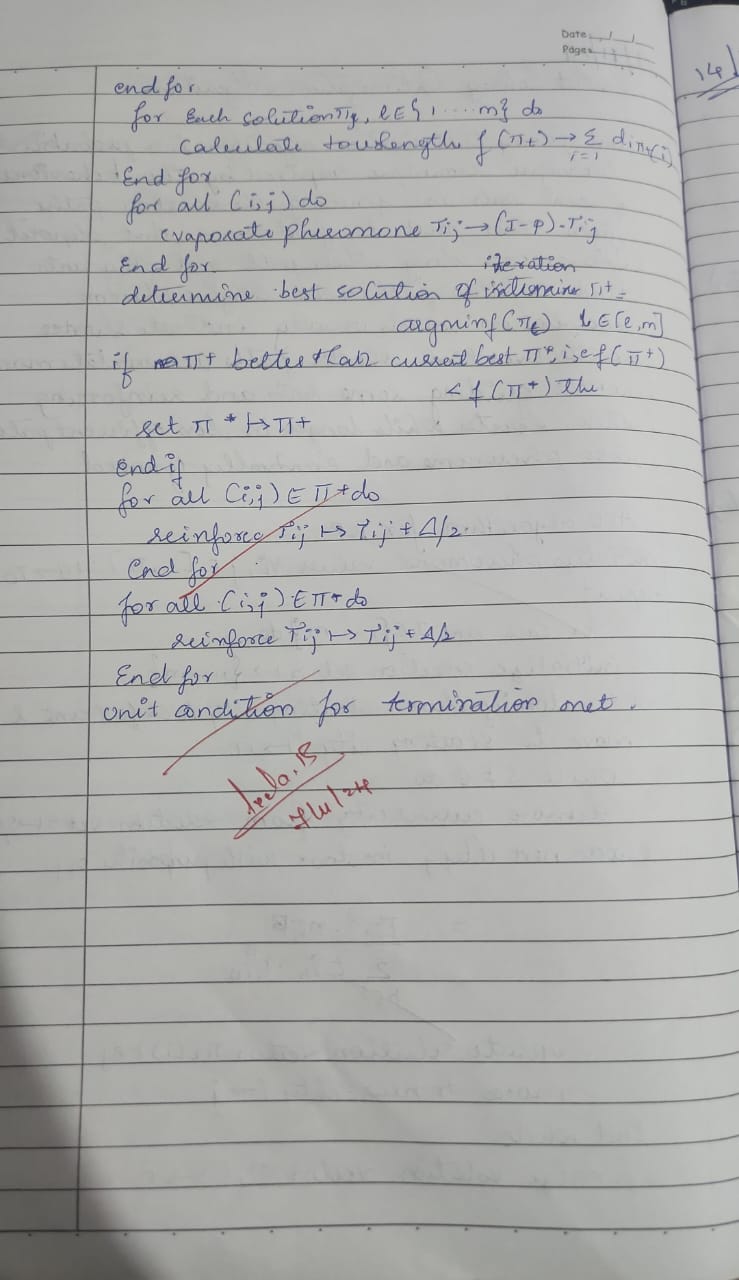 Date / /
Page
14
end for
for Each solution πl, l ∈ {1 .... m} do
Calculate tourlength f(πl) → Σ i=1 diπ(i)
End for
for all (i,j) do
evaporate pheromone Tij → (I-P)·Tij
End for
iteration
determine best solution of π+ =
argminf(πl) l ∈ [e,m]
if π+ better than current best π*, ie f(π+)
< f(π+) the
set π * ↦ π+
End if
for all (i,j) ∈ π+ do
reinforce Tij ↦ Tij + Δ/2
End for
for all (i,j) ∈ π+ do
reinforce Tij ↦ Tij + Δ/2
End for
unit condition for termination met.